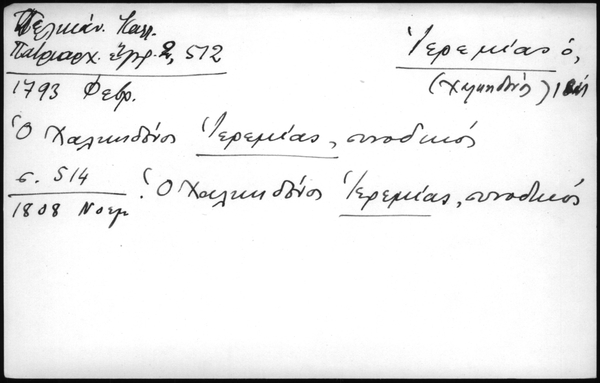 Δελικάν. Καλλ.
Πατριαρχ. Ἔγγρ. 2, 512
Ἱερεμίας ὁ,
(Χαλκηδόνος)
1793 Φεβρ.
Ὁ Χαλκηδόνος Ἱερεμίας, συνοδικός
σ. 514
1808 Νοεμ. Ὁ Χαλκηδόνος Ἱερεμίας, συνοδικός